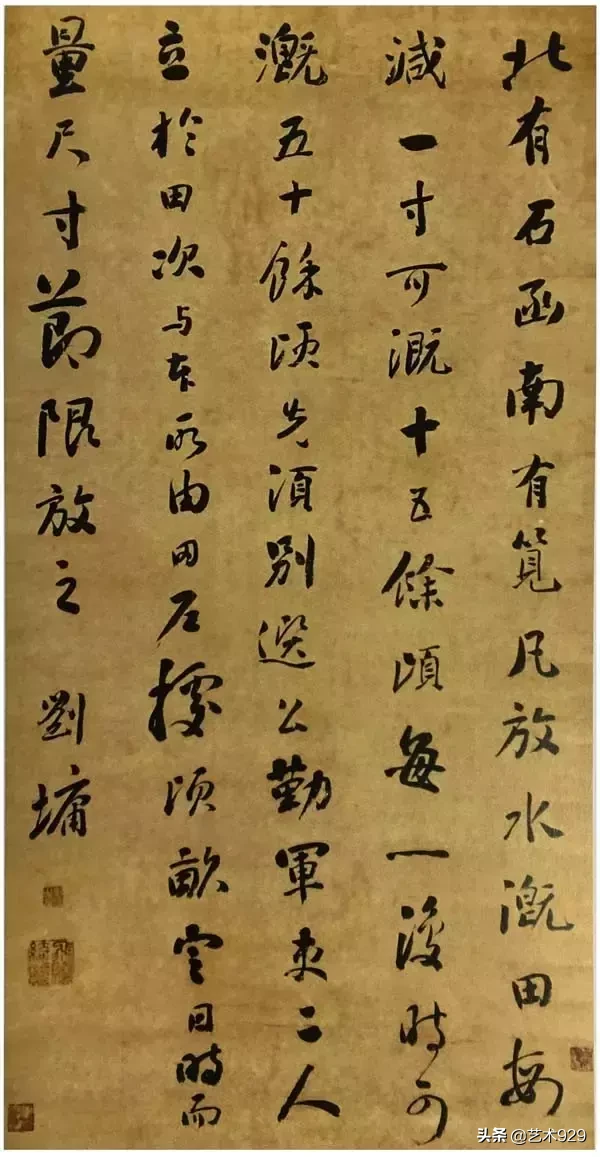 北有石函南有筧凡放水溉田每
減一寸可溉十五餘頃每一復時可
溉五十餘頃先須別選公勤軍吏二人
立於田次与本所由田户據頃畝定日時而
量尺寸節限放之 劉墉
头条 @艺术929